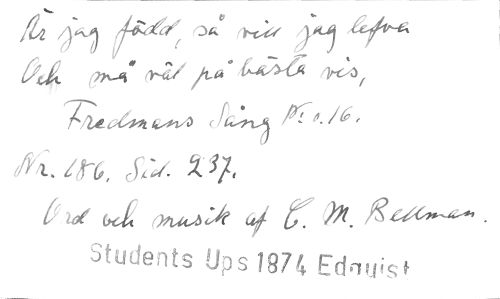 Är jag född, så vill jag lefva
Och må väl på bästa vis,
Fredmans Sång N:o.16.
Nr. 186. Sid. 237.
Ord och musik af C. M. Bellman.
Students Ups 1874 Edquist